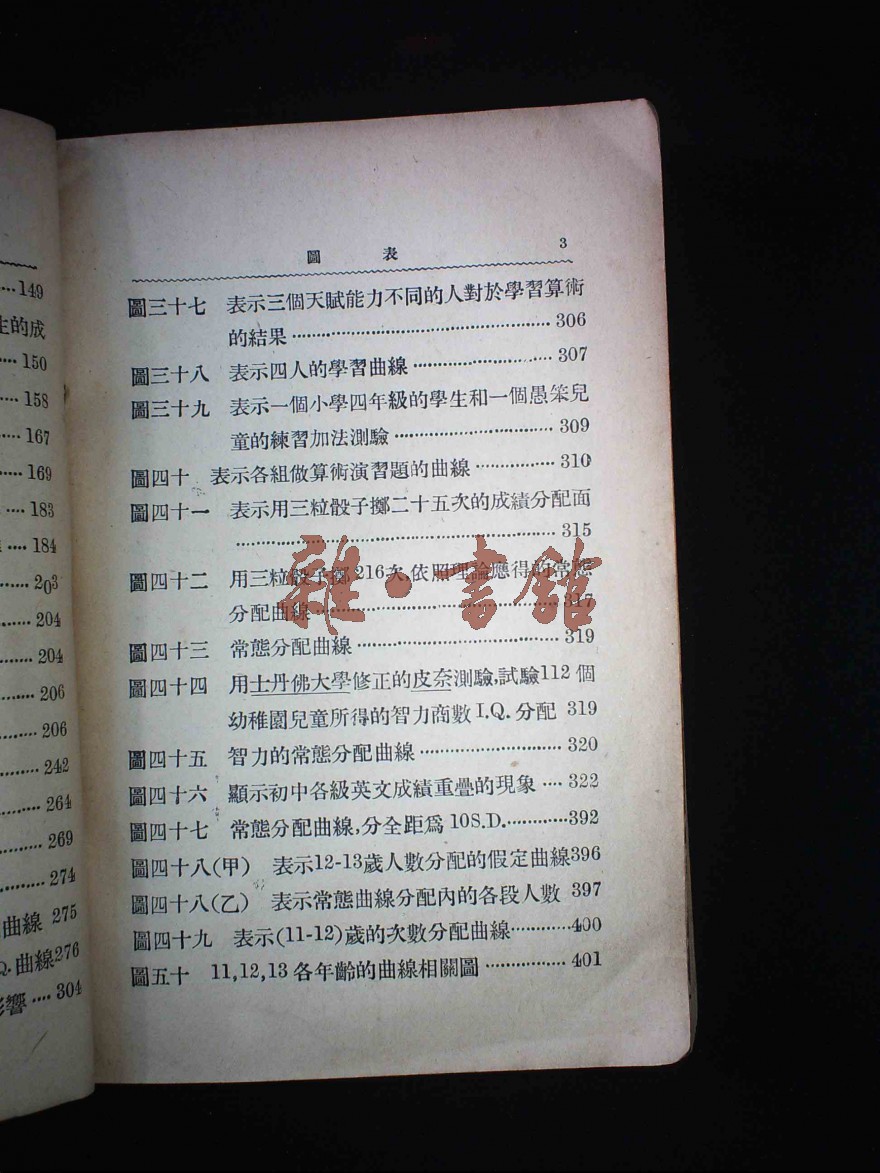 149
生的成
150
158
167
169
183
184
203
204
204
206
206
242
264
269
274
曲線 275
Q.曲線276
影響····304
圖 表 3
圖三十七 表示三個天賦能力不同的人對於學習算術
的結果································306
圖三十八 表示四人的學習曲線··················307
圖三十九 表示一個小學四年級的學生和一個愚笨兒
童的練習加法測驗····················309
圖四十 表示各組做算術演習題的曲線··········310
圖四十一 表示用三粒骰子擲二十五次的成績分配面
········································315
圖四十二 用三粒骰子擲216次,依照理論應得的常態
分配曲線······························317
圖四十三 常態分配曲線··························319
圖四十四 用士丹佛大學修正的皮奈測驗,試驗112個
幼稚園兒童所得的智力商數I.Q.分配 319
圖四十五 智力的常態分配曲線··················320
圖四十六 顯示初中各級英文成績重疊的現象····322
圖四十七 常態分配曲線,分全距爲10S.D.············392
圖四十八(甲) 表示12-13歲人數分配的假定曲線396
圖四十八(乙) 表示常態曲線分配內的各段人數 397
圖四十九 表示(11-12)歲的次數分配曲線············400
圖五十 11,12,13各年齡的曲線相關圖············401
雜·書館